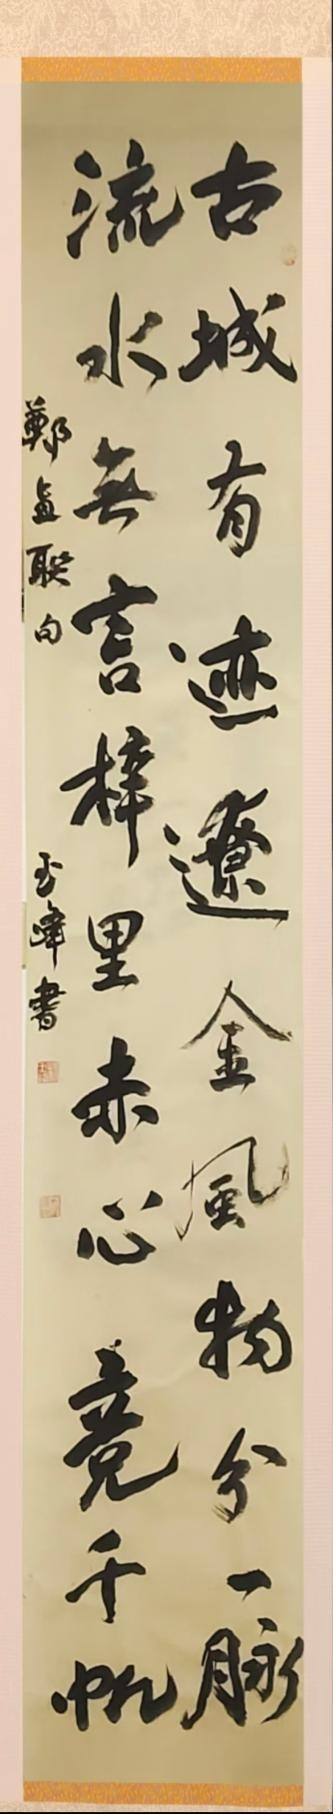 古城有迹遼金風物分一脉
流水無言梓里赤心競千帆
鄭孟聯句
玉峰書